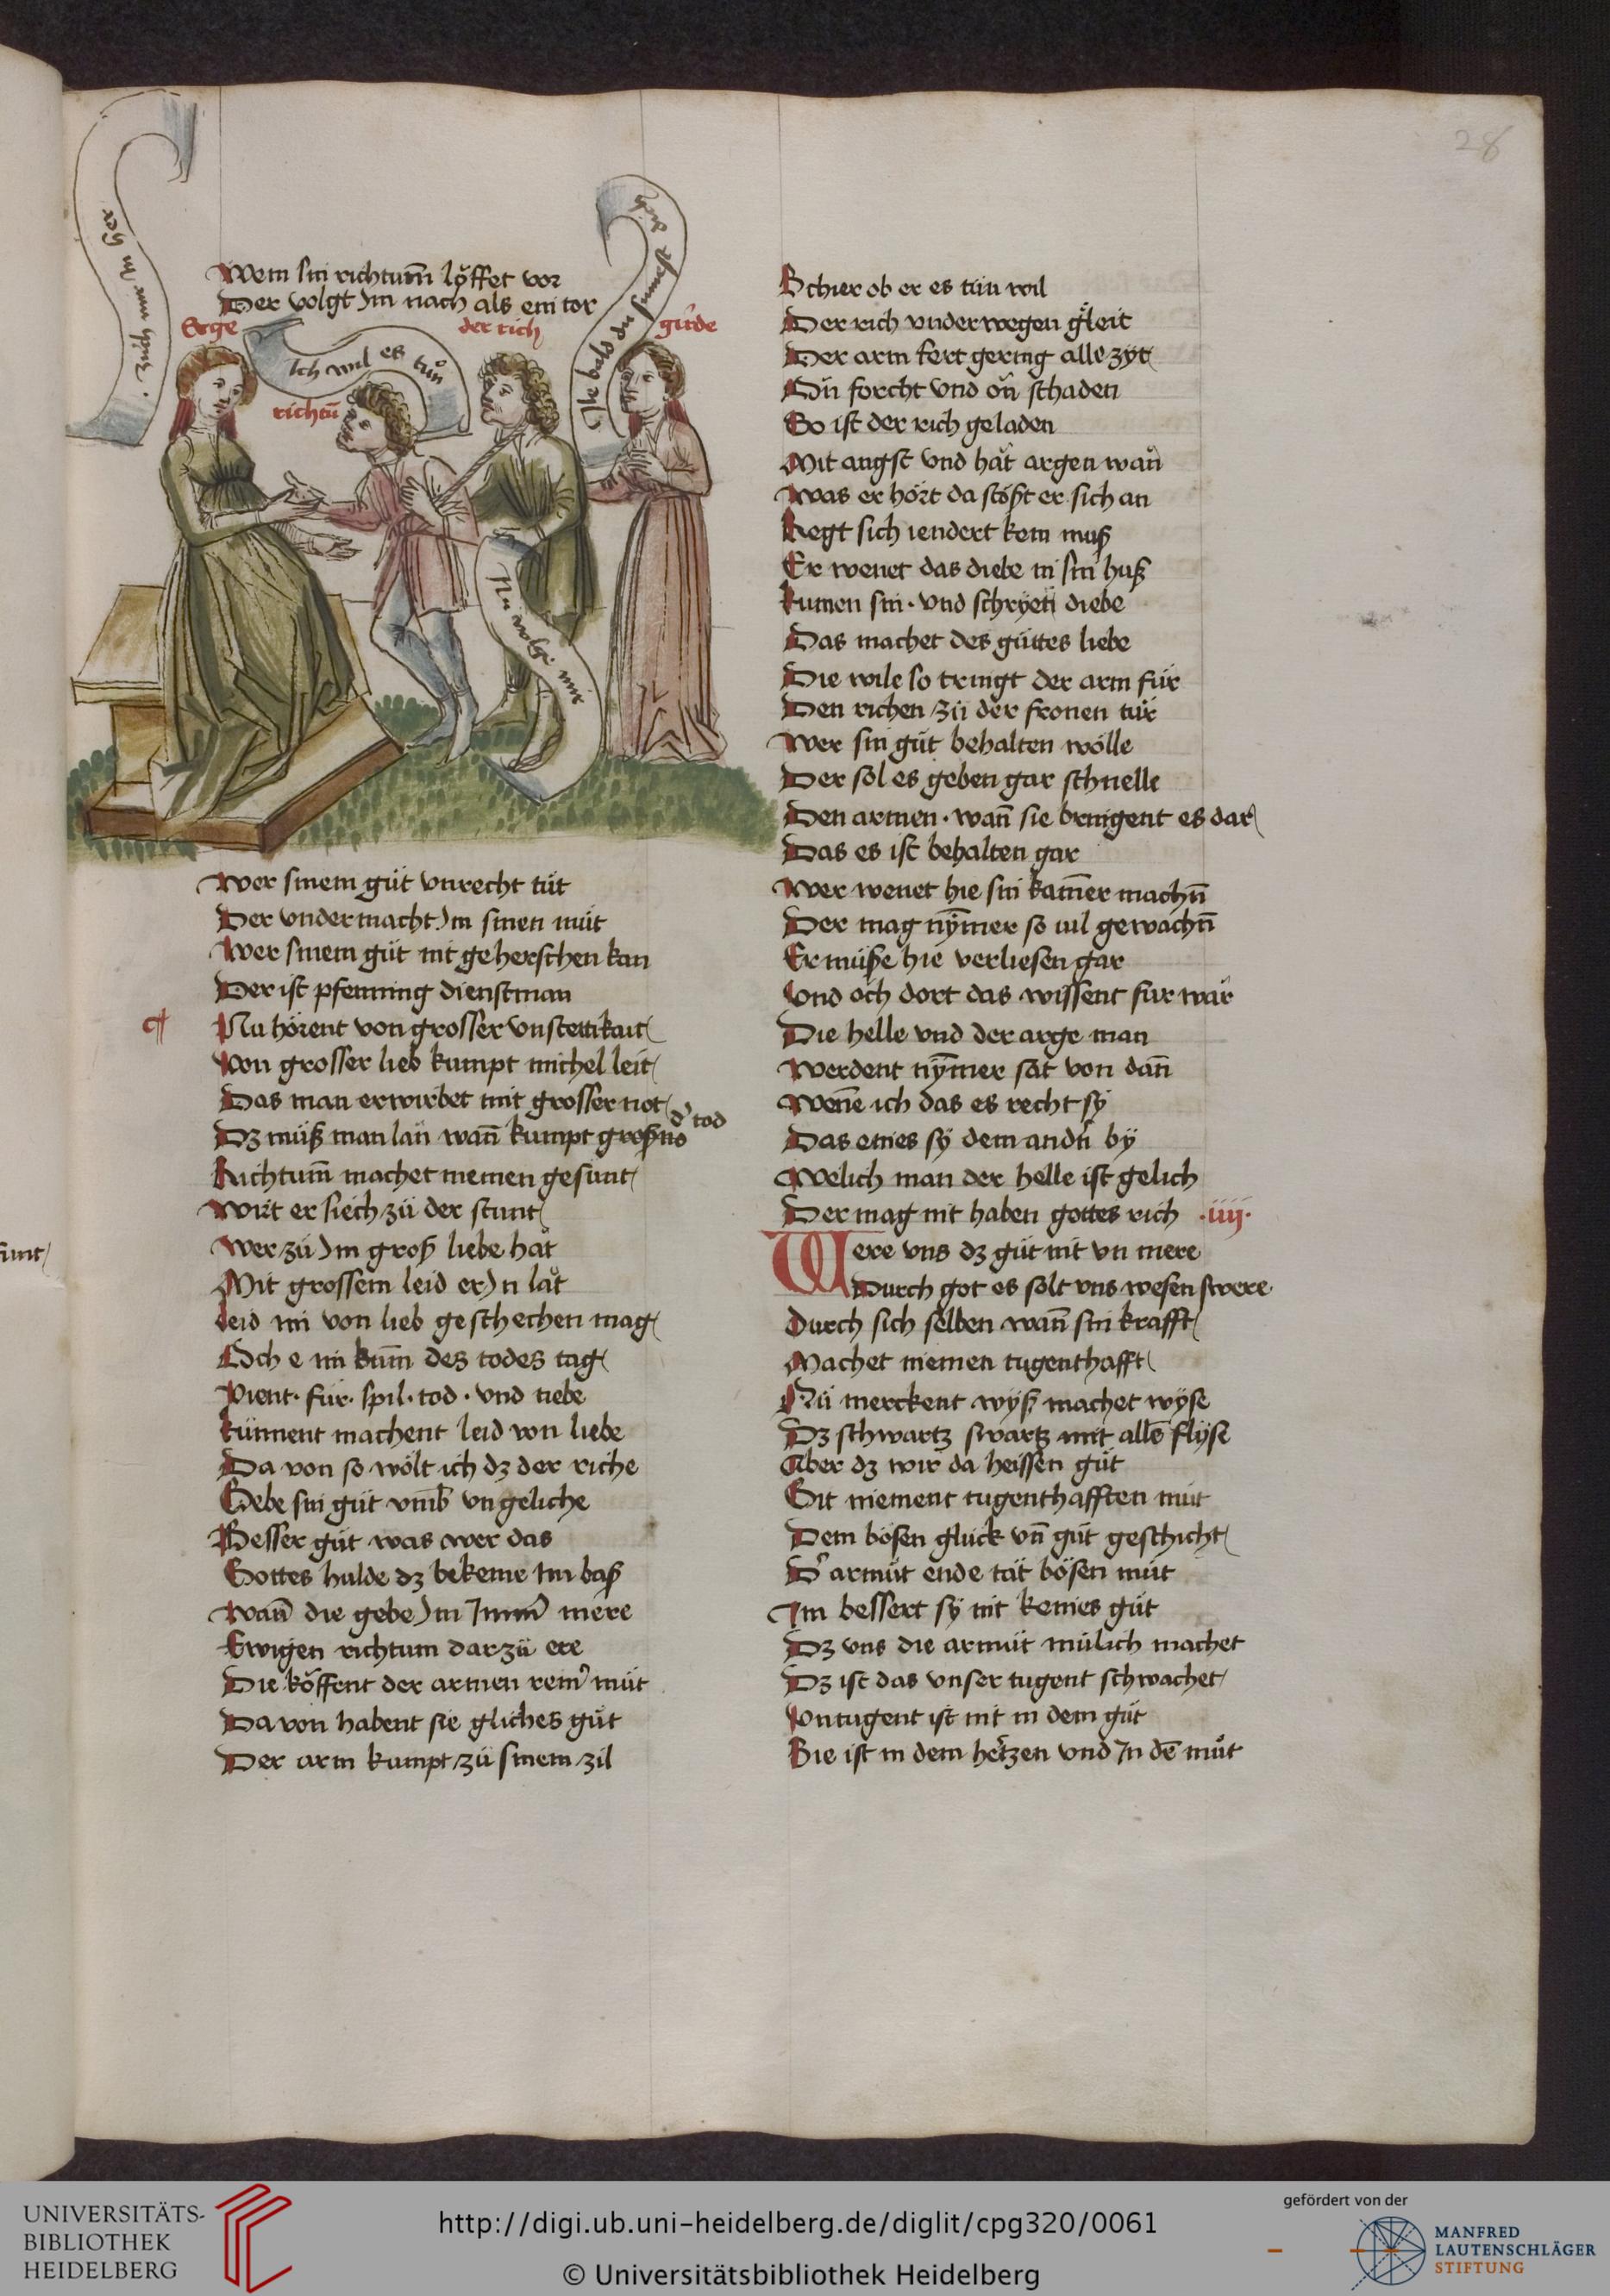 28
Wem sin richtum̄ löffet vor
Der volgt Im nach als ein tor
Erge
der rich
girde
richtū
züch Im Inn her
Ich wil es tůn
Ile bald du
Nu volg mir
Wer sinem güt vnrecht tüt
Der vndermacht Im sinen müt
Wer sinem güt nit geherschen kan
Der ist pfenning dienstman
¶ Nu hörent von grosser vnstettikait
Von grosser lieb kumpt michel leit
Das man erwirbet mit grosser not
Dz müß man lan wan̄ kumpt
d' tod
Richtum̄ machet niemen gesunt
Wirt er siech zü der stunt
Wer zü Im groß liebe hat
Mit grossem leid er In lat
Leid im von lieb geschechen mag
Och e im kum̄ des todes tag
Vient · für · spil · tod · vnd diebe
Künnent machent leid von liebe
Da von so wölt ich dz der riche
Gebe sin güt vmb vngeliche
Besser güt was wer das
Gottes hulde dz bekeme Im baß
Wan̄ die gebe Im Immer mere
Ewigen richtum dar zü ere
Die köffent der armen reiner müt
Da von habent sie gliches güt
Der arm kumpt zü sinem zil
Schier ob er es tün wil
Der rich vnderwegen gleit
Der arm fert gering alle zyt
On forcht vnd on schaden
So ist der rich geladen
Mit angst vnd hat argen wan
Was er hört da stößt er sich an
Regt sich iendert kein muß
Er wenet das diebe in sin huß
Kumen sin · vnd schryen diebe
Das machet des güttes liebe
Die wile so tringt der arm für
Den richen zü der fronen tür
Wer sin güt behalten wölle
Der sol es geben gar schnelle
Den armen · wan̄ sie bringent es dar
Das es ist behalten gar
Wer wenet hie sin kam̄er machn̄
Der mag nym̄er so vil gewachn̄
Er müße hie verliesen gar
Vnd och dort das wissent fur war
Die helle vnd der arge man
Werdent nym̄er sat von dan̄
Wene ich das es recht sy
Das eines sy dem andn̄ by
Welich man der helle ist gelich
Der mag nit haben gottes rich · iiij ·
Were vns dz güt nit vn mere
Durch got es solt vns wesen swere
Durch sich selben wan̄ sin krafft
Machet niemen tugenthafft
Nü merckent wyß machet wyse
Dz schwartz swartz mit allē flyse
Aber dz wir da heissen güt
Git niement tugenthafften müt
Dem bösen gluck vn̄ güt geschicht
D' armüt ende tät bösen müt
Im bessert sy nit keines güt
Dz vns die armüt mülich machet
Dz ist das vnser tugent schwachet
Vntugent ist nit in dem güt
Sie ist in dem hertzen vnd In dē müt
UNIVERSITÄTS-
BIBLIOTHEK
HEIDELBERG
http://digi.ub.uni-heidelberg.de/diglit/cpg320/0061
© Universitätsbibliothek Heidelberg
gefördert von der
MANFRED
LAUTENSCHLÄGER
STIFTUNG